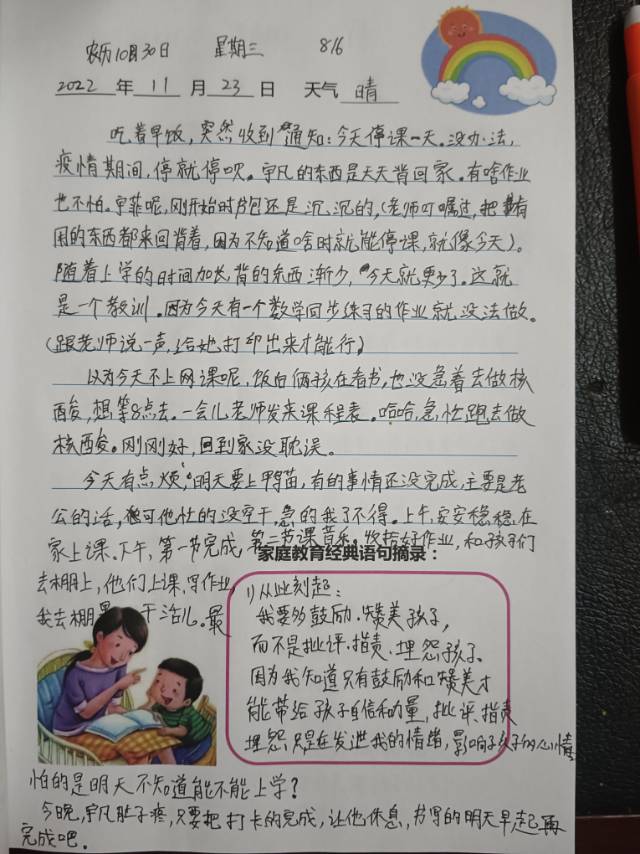 农历10月30日 星期三 816
2022年11月23日 天气 晴
吃着早饭，突然收到通知：今天停课一天。没办法，
疫情期间，停就停呗。宇凡的东西是天天背回家。有啥作业
也不怕。宇菲呢，刚开始时书包还是沉沉的，(老师叮嘱过，把所有
用的东西都来回背着，因为不知道啥时就能停课，就像今天)。
随着上学的时间加长，背的东西渐少，今天就更少了。这就
是一个教训。因为今天有一个数学同步练习的作业就没法做。
(跟老师说一声，给她打印出来才能行)
以为今天不上网课呢，饭后俩孩在看书，也没急着去做核
酸，想等8点去。一会儿老师发来课程表。哈哈，急忙跑去做
核酸。刚刚好，回到家没耽误。
今天有点烦，明天要上鸭苗，有的事情还没完成，主要是老
公的活，可他忙的没空干，急的我了不得。上午安安稳稳在
家上课。下午，第一节完成，第二节课音乐，收拾好作业，和孩子们
去棚上，他们上课，写作业，
我去棚里干活儿。最
家庭教育经典语句摘录：
1)从此刻起：
我要多鼓励、赞美孩子，
而不是批评、指责、埋怨孩子。
因为我知道只有鼓励和赞美才
能带给孩子自信和力量，批评、指责
埋怨只是在发泄我的情绪，影响孩子的心情
怕的是明天不知道能不能上学？
今晚，宇凡肚子疼，只要把打卡的完成，让他休息，书写的明天早起再
完成吧。